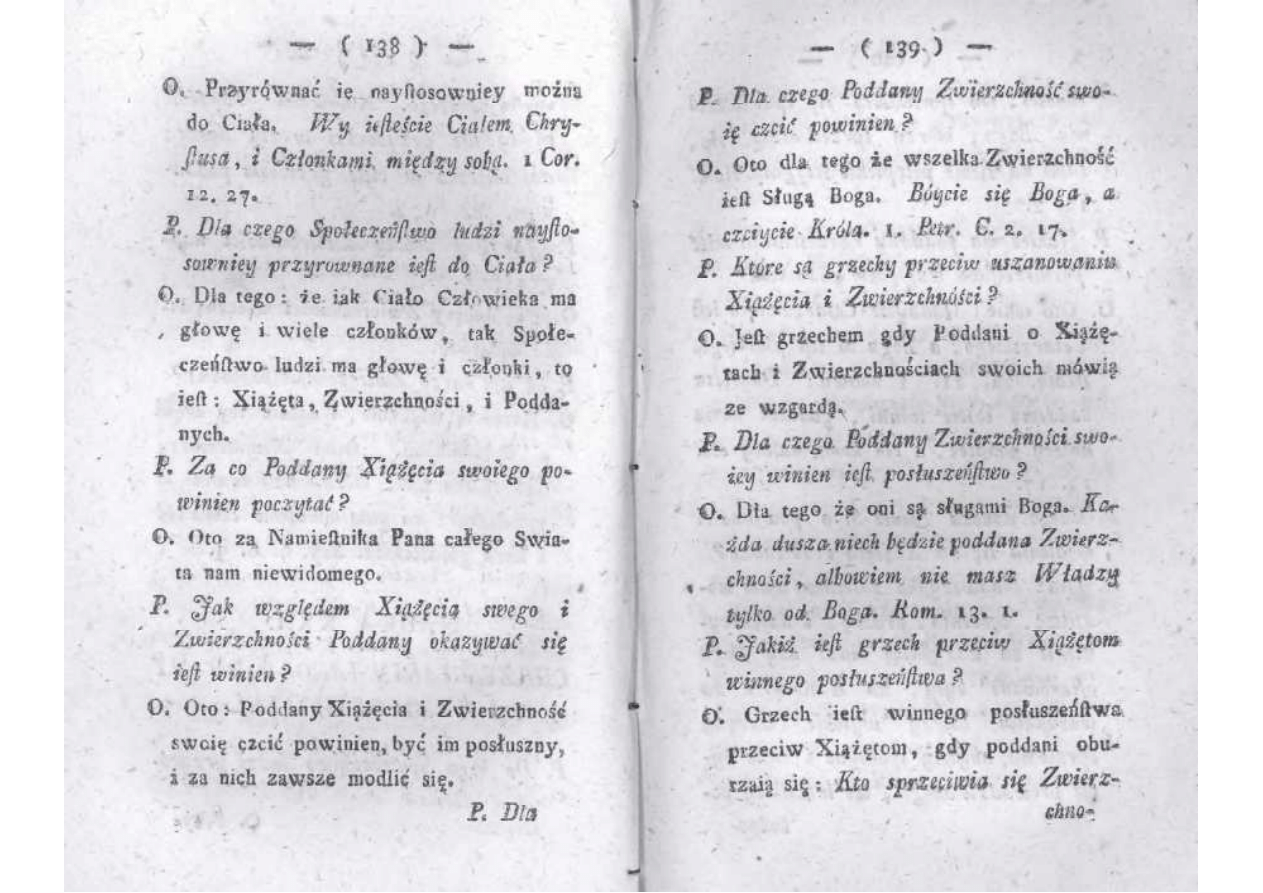 — ( 138 ) —
O. Przyrównać ie nayſtosowniey można
do Ciała. Wy ieſteście Ciałem Chry-
ſtusa, i Członkami między sobą. 1 Cor.
12. 27.
P. Dla czego Społeczeńſtwo ludzi nayſto-
sowniey przyrownane ieſt do Ciała?
O. Dla tego: że iak Ciało Człowieka ma
głowę i wiele członków, tak Społe-
czeńſtwo ludzi ma głowę i członki, to
ieſt: Xiążęta, Zwierzchności, i Podda-
nych.
P. Za co Poddany Xiążęcia swoiego po-
winien poczytać?
O. Oto za Namieſtnika Pana całego Swia-
ta nam niewidomego.
P. Jak względem Xiążęcia swego i
Zwierzchności Poddany okazywać się
ieſt winien?
O. Oto: Poddany Xiążęcia i Zwierzchność
swoię czcić powinien, być im posłuszny,
i za nich zawsze modlić się.
P. Dla
— ( 139 ) —
P. Dla czego Poddany Zwierzchność swo-
ię czcić powinien?
O. Oto dla tego że wszelka Zwierzchność
ieſt Sługą Boga. Bóycie się Boga, a
czciycie Króla. 1. Petr. C. 2. 17.
P. Które są grzechy przeciw uszanowaniu
Xiążęcia i Zwierzchności?
O. Jeſt grzechem gdy Poddani o Xiążę-
tach i Zwierzchnościach swoich mówią
ze wzgardą.
P. Dla czego Poddany Zwierzchności swo-
iey winien ieſt posłuszeńſtwo?
O. Dla tego że oni są sługami Boga. Ka-
żda dusza niech będzie poddana Zwierz-
chności, albowiem nie masz Władzy
tylko od Boga. Rom. 13. 1.
P. Jakiż ieſt grzech przeciw Xiążętom
winnego posłuszeńſtwa?
O. Grzech ieſt winnego posłuszeńſtwa
przeciw Xiążętom, gdy poddani obu-
rzaią się: Kto sprzeciwia się Zwierz-
chno-